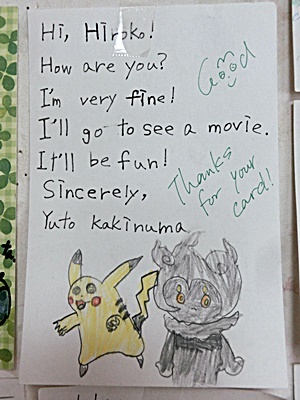 Hi, Hiroko!
How are you?
Good
I'm very fine!
I'll go to see a movie.
It'll be fun!
Thanks
for your
card!
Sincerely,
Yuto Kakinuma